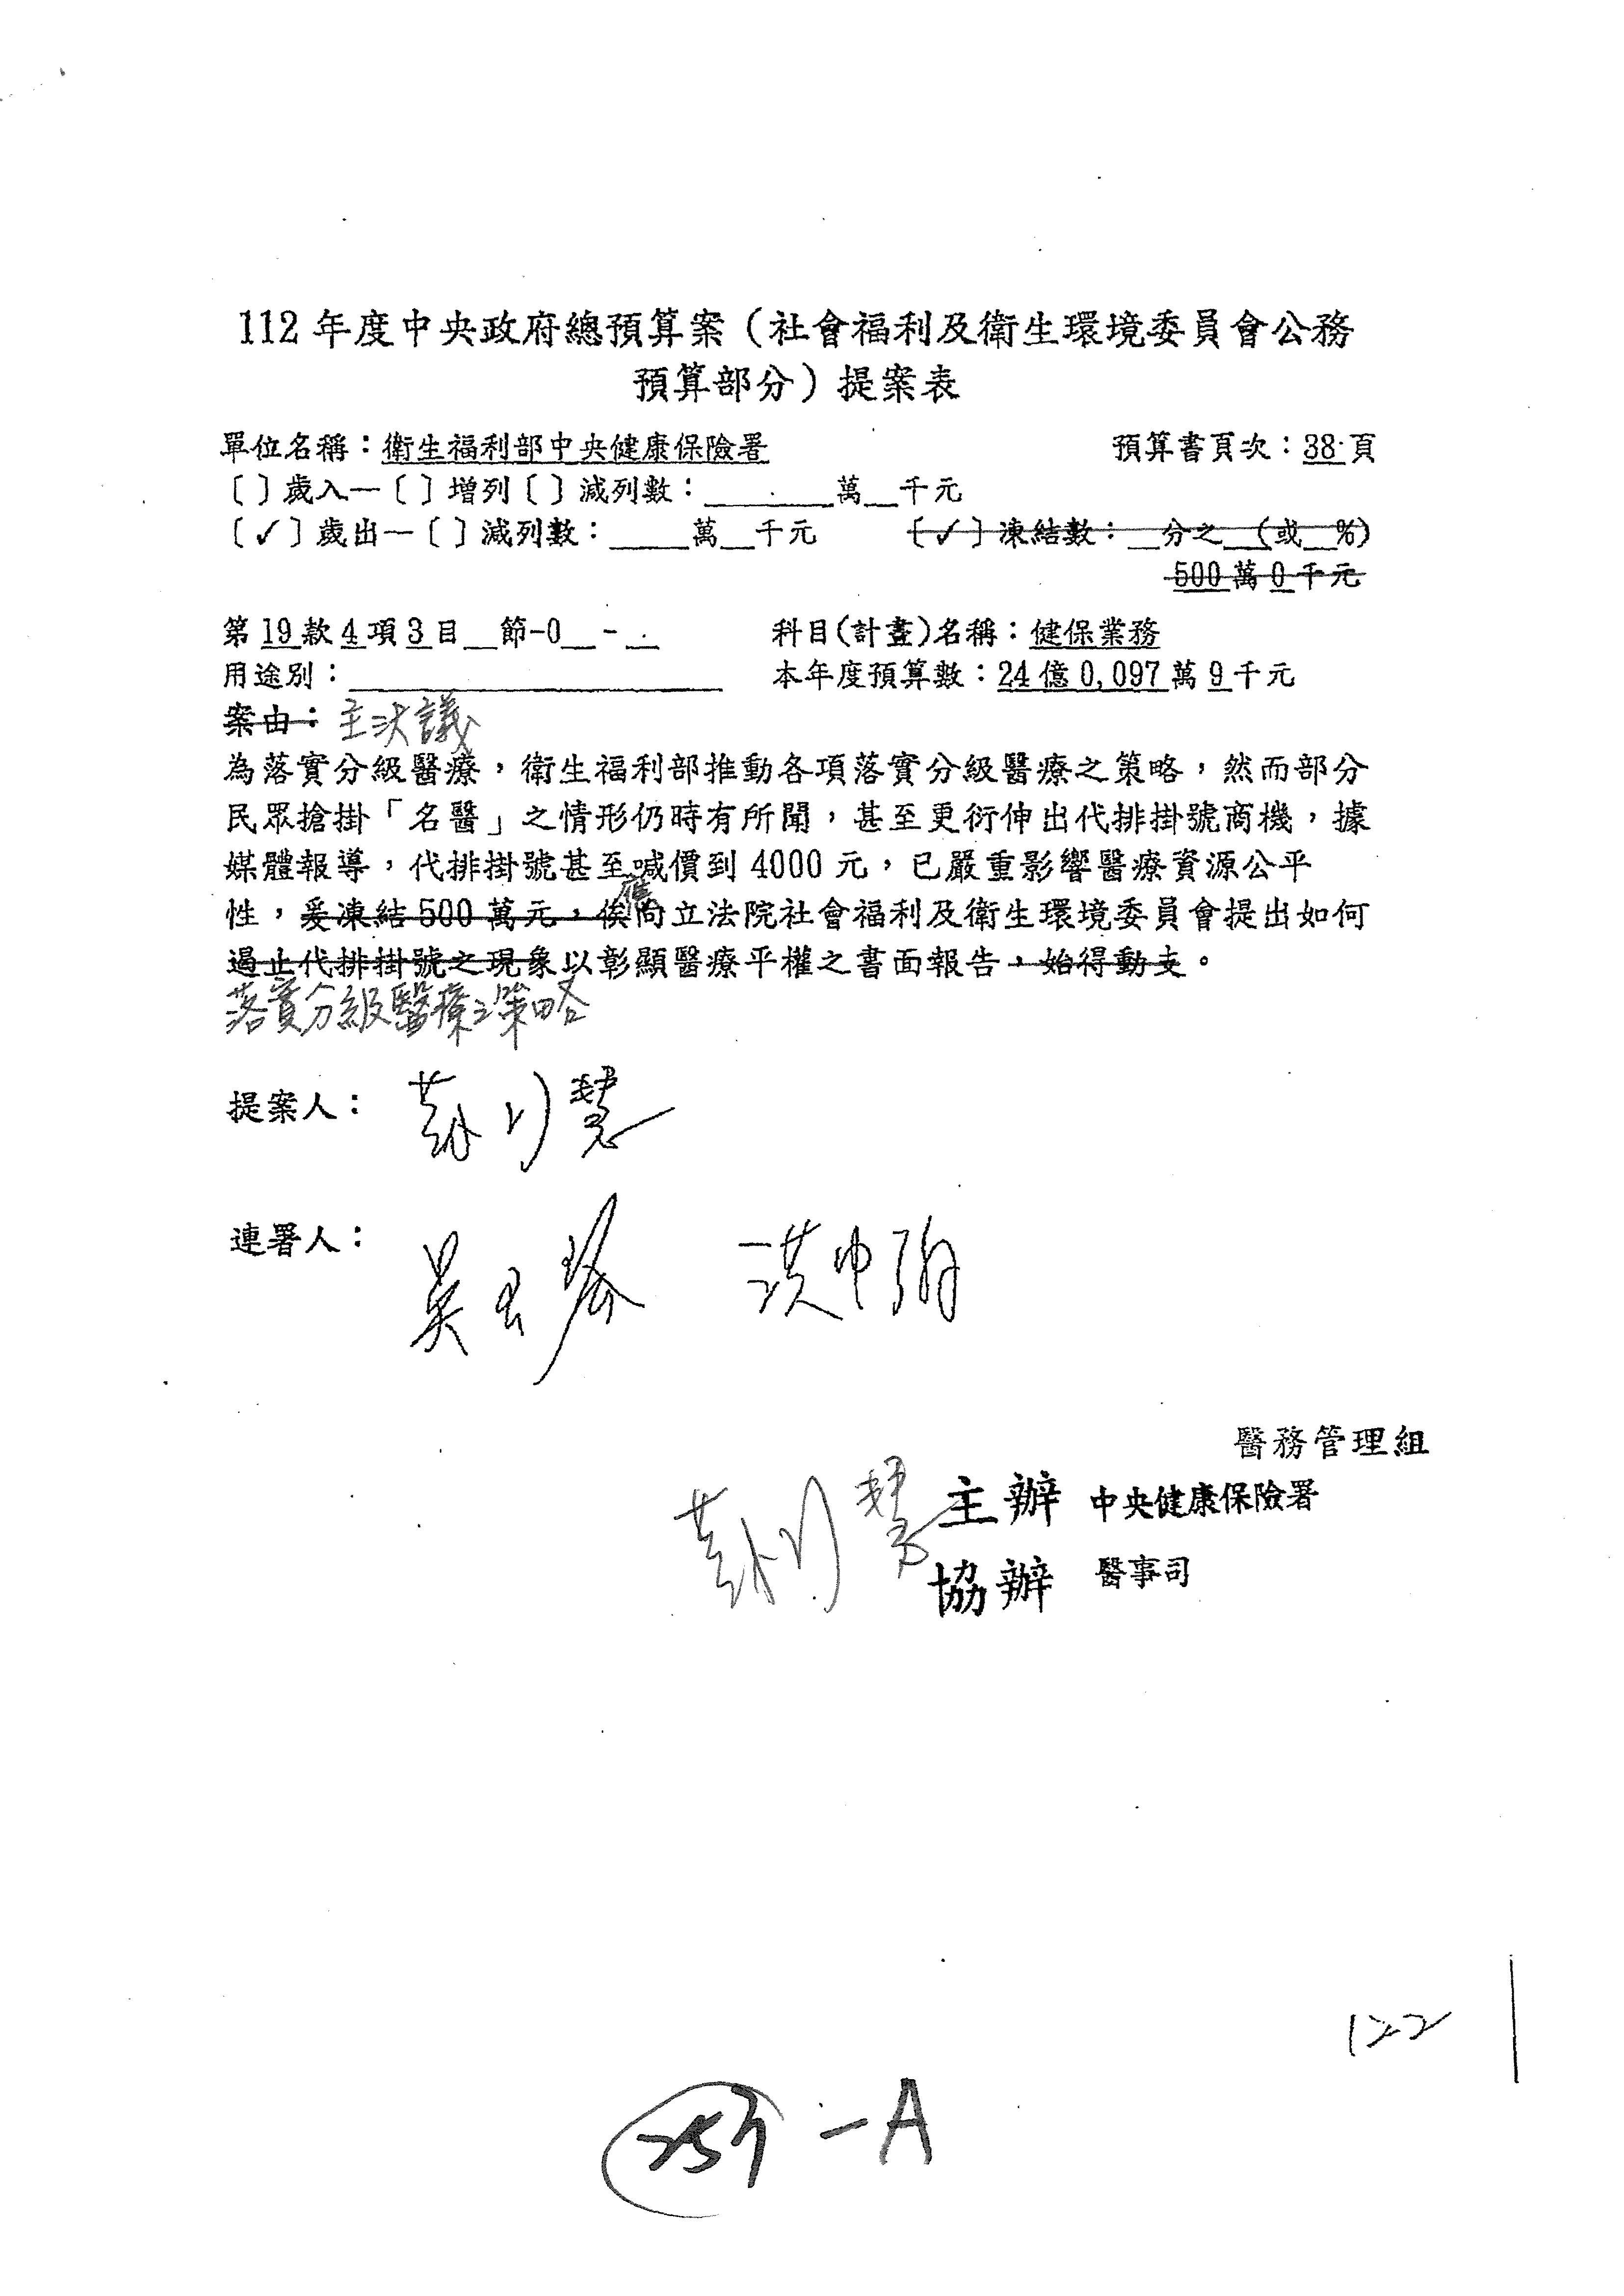 112年度中央政府總預算案（社會福利及衛生環境委員會公務
預算部分）提案表
單位名稱：衛生福利部中央健康保險署 預算書頁次：38頁
〔〕歲入—〔〕增列〔〕減列數：________萬__千元
〔✓〕歲出—〔〕減列數：_____萬__千元 〔✓〕凍結數：__分之__(或__%)
500萬0千元
第19款4項3目__節-0__-__ 科目(計畫)名稱：健保業務
用途別：________________ 本年度預算數：24億0,097萬9千元
案由：主決議
為落實分級醫療，衛生福利部推動各項落實分級醫療之策略，然而部分
民眾搶掛「名醫」之情形仍時有所聞，甚至更衍伸出代排掛號商機，據
媒體報導，代排掛號甚至喊價到4000元，已嚴重影響醫療資源公平
應
性，爰凍結500萬元，俟向立法院社會福利及衛生環境委員會提出如何
遏止代排掛號之現象以彰顯醫療平權之書面報告，始得動支。
落實分級醫療之策略
提案人：
連署人：吳玉琴 洪申翰
醫務管理組
主辦 中央健康保險署
協辦 醫事司
122
-A